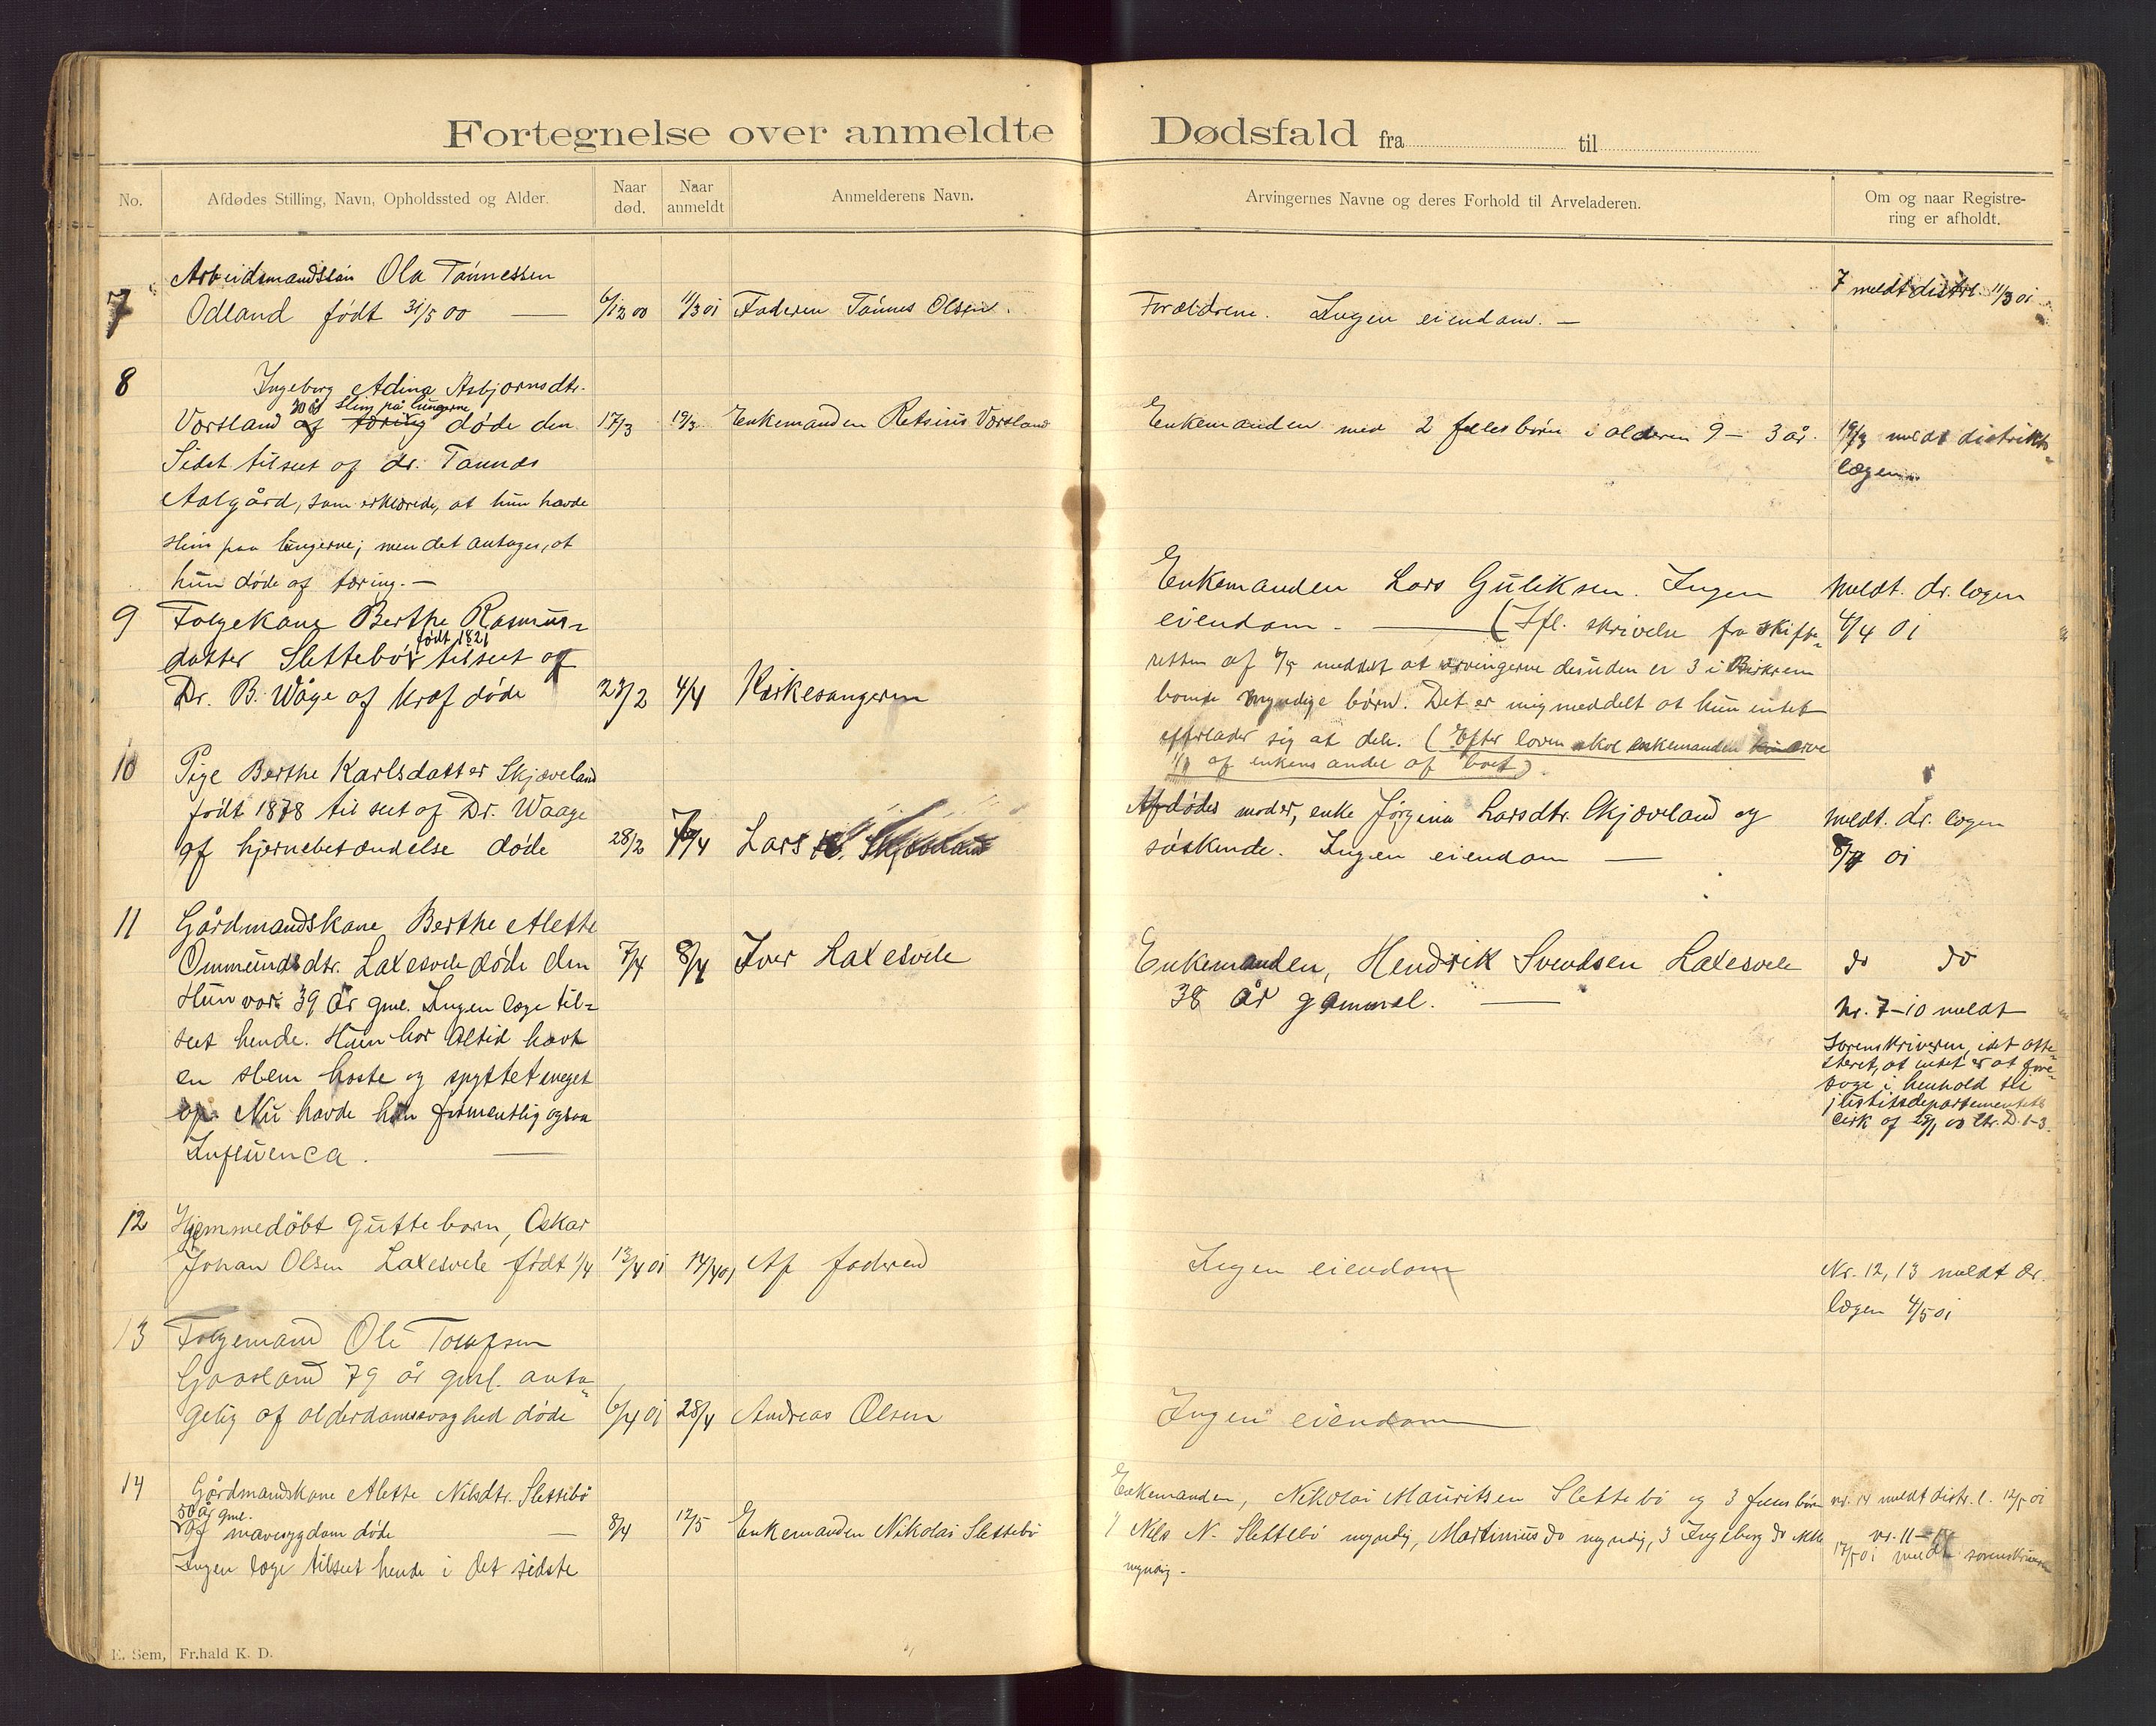 Fortegnelse over anmeldte Dødsfald fra til
No.
Afdødes Stilling, Navn, Opholdssted og Alder.
Naar død.
Naar anmeldt
Anmelderens Navn.
Arvingernes Navne og deres Forhold til Arveladeren.
Om og naar Registre-
ring er afholdt.
7
Arbeidsmandssøn Ola Tønnessen
Odland født 31/5 00 —
6/12 00
11/3 01
Faderen Tønnes Olsen.
Forældrene. Ingen eiendom. —
7 meldt distrl. 11/3 01
8
Ingeborg Adina Asbjørnsdtr.
30 år slim på lungerne
Vorsland af tæring døde den
17/3
19/3
Enkemanden Retsius Vorsland
Enkemanden med 2 fælles børn i alderen 9 – 3 år.
19/3 meldt distrikts-
lægen
Sidst tilseet af dr. Tannes
Aalgård, som erklærede, at hun havde
slim paa lungerne; men det antages, at
hun døde af tæring. —
9
Folgekone Berthe Rasmus-
født 1821
datter Slettebø tilseet af
Dr. B. Wåge af kræf døde
23/2
4/4
Kirkesangeren
Enkemanden Lars Guliksen. Ingen
eiendom. — (Ifl. skrivelse fra skifte-
retten af 6/5 meddelt at arvingerne desuden er 3 i Bjerkrem
boende myndige børn. Det er mig meddelt at hun intet
efterlader sig at dele. (Efter loven skal enkemanden arve
1/4 af enkens andel af boet).
Meldt. dr. lægen
4/4 01
10
Pige Berthe Karlsdatter Skjæveland
født 1878 tilseet af Dr. Waage
af hjernebetændelse døde
28/2
7/4
Lars K. Skjæveland
Afdødes moder, enke Jørgina Larsdtr. Skjæveland og
søskende. Ingen eiendom —
meldt. dr. lægen
8/4 01
11
Gårdmandskone Berthe Alette
Ommundsdtr. Laxesvele døde den
7/4
8/4
Iver Laxesvele
Enkemanden, Hendrik Svendsen Laxesvele
38 år gammel. —
do do
Hun var 39 år gml. Ingen læge til-
seet hende. Hun har altid havt
en slem hoste og spyttet meget
op. Nu havde hun formentlig ogsaa
Influenca. —
Nr. 7–10 meldt
Sorenskriveren, idet atte-
steret, at intet er at fore-
tage i henhold til
justitsdepartementets
cirk af 29/1 00 ltr. D. 1-3.
12
Hjemmedøbt guttebarn, Oskar
Johan Olsen Laxesvele født 1/4
13/4 01
14/4 01
Af faderen
Ingen eiendom
Nr. 12, 13 meldt dr.
lægen 4/5 01
13
Folgemand Ole
Gaasland 79 år gml. anta-
gelig af alderdomssvaghed døde
6/4 01
28/4
Andreas Olsen
Ingen eiendom
14
Gårdmandskone Alette Nilsdtr. Slettebø
50 år gml.
af mavesygdom døde —
8/4
12/5
Enkemanden Nikolai Slettebø
Ingen læge tilseet hende i det sidste
Enkemanden, Nikolai Mauritsen Slettebø og 3 fælles børn
1) Nils N. Slettebø myndig, Martinius do myndig, 3 Ingeborg do ikke
myndig.
nr. 14 meldt distr. l. 12/5 01
nr. 11–14
17/5 01 meldt sorenskriveren
E. Sem, Fr.hald K. D.